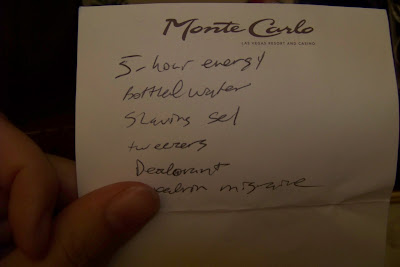 Monte Carlo
LAS VEGAS RESORT AND CASINO
5-hour energy
bottled water
Shaving gel
tweezers
Deodorant
migraine